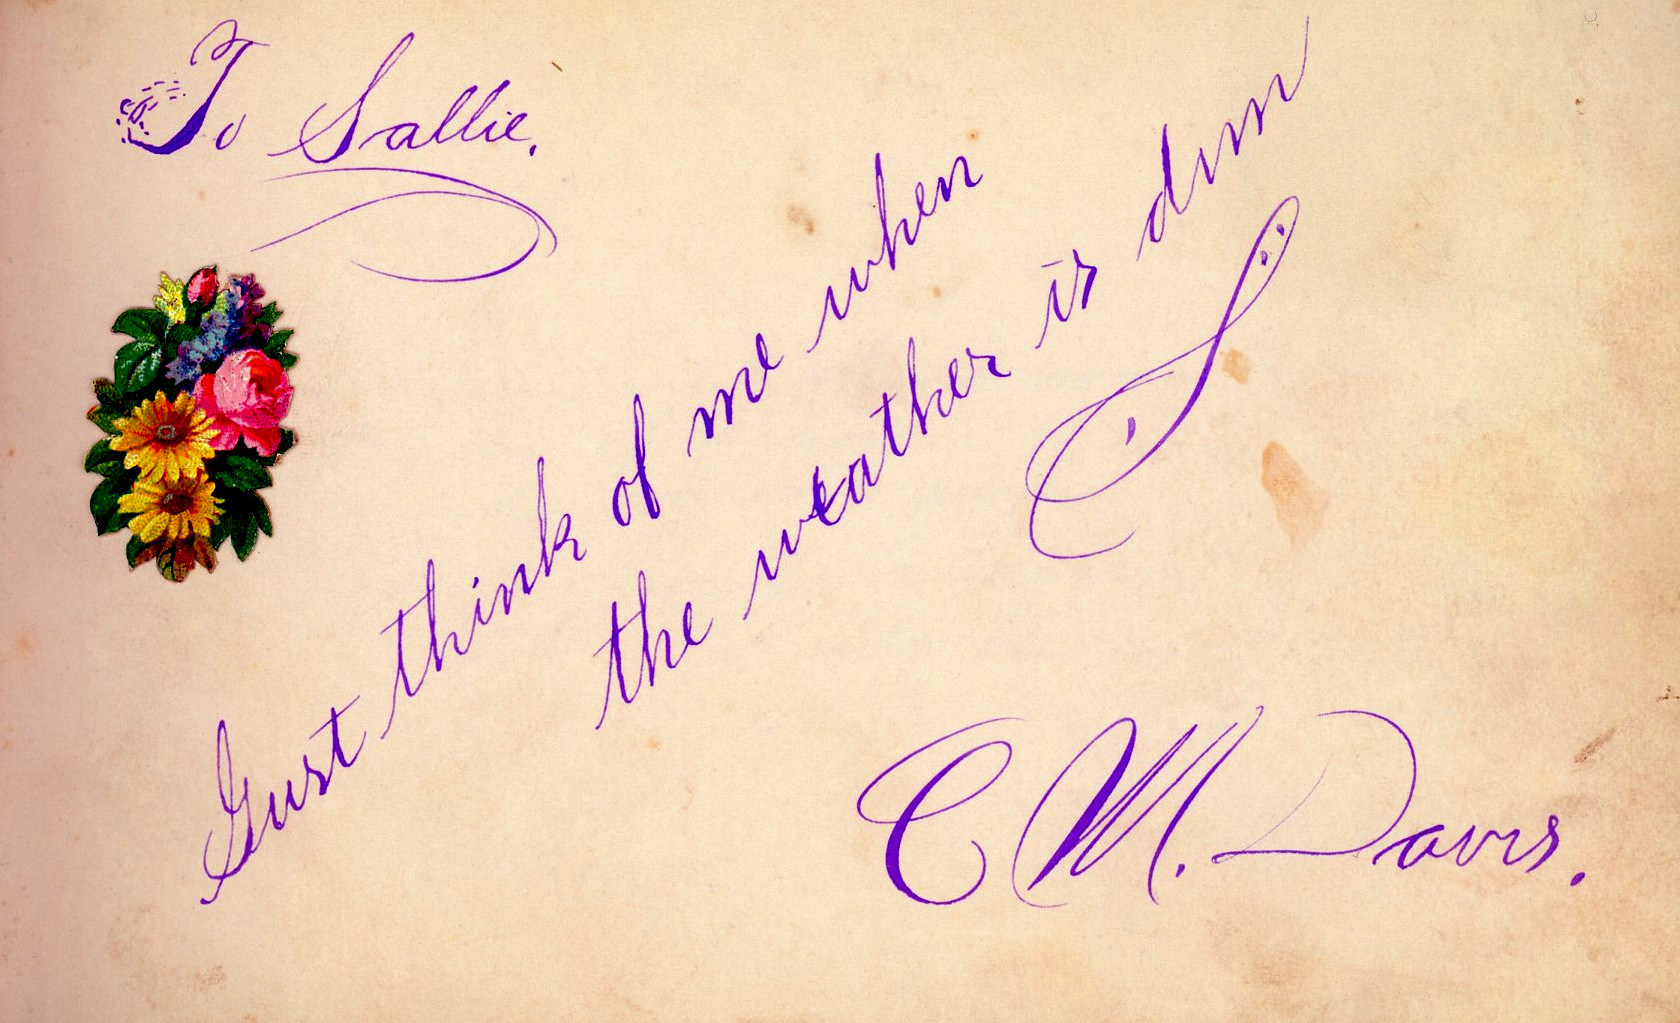 To Sallie.
Gust think of me when
the weather is dim
C M. Davis.